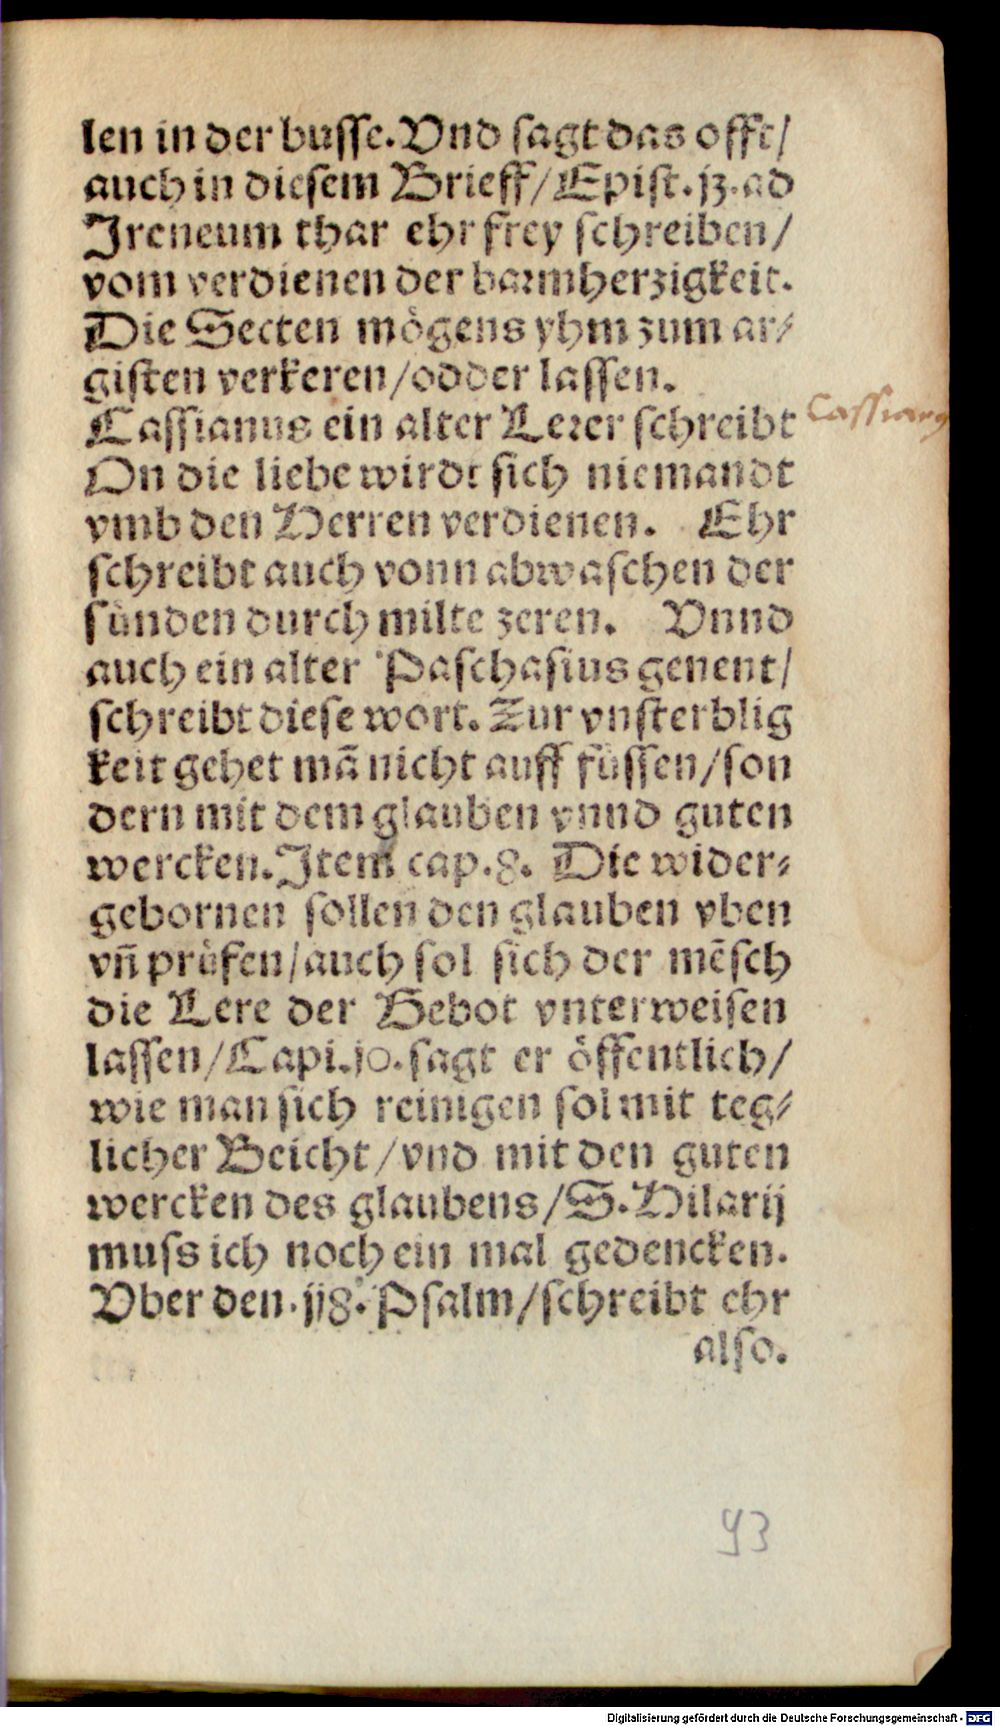 len in der busse. Vnd sagt das offt/
auch in diesem Brieff/Epist. jz. ad
Jreneum thar ehr frey schreiben/
vom verdienen der barmherzigkeit.
Die Secten mögens yhm zum ar⸗
gisten verkeren/odder lassen.
Cassianus ein alter Lerer schreibt
Cassianus
On die liebe wirdt sich niemandt
vmb den Herren verdienen. Ehr
schreibt auch vonn abwaschen der
sünden durch milte zeren. Vnnd
auch ein alter Paschasius genent/
schreibt diese wort. Zur vnsterblig
keit gehet mã nicht auff füssen/son
dern mit dem glauben vnnd guten
wercken. Jtem cap. 8. Die wider⸗
gebornen sollen den glauben vben
vñ prüfen/auch sol sich der mẽsch
die Lere der Gebot vnterweisen
lassen/Capi. jo. sagt er öffentlich/
wie man sich reinigen sol mit teg⸗
licher Beicht/vnd mit den guten
wercken des glaubens/S. Hilarij
muss ich noch ein mal gedencken.
Vber den. jj8. Psalm/schreibt ehr
also.
93
Digitalisierung gefördert durch die Deutsche Forschungsgemeinschaft - DFG